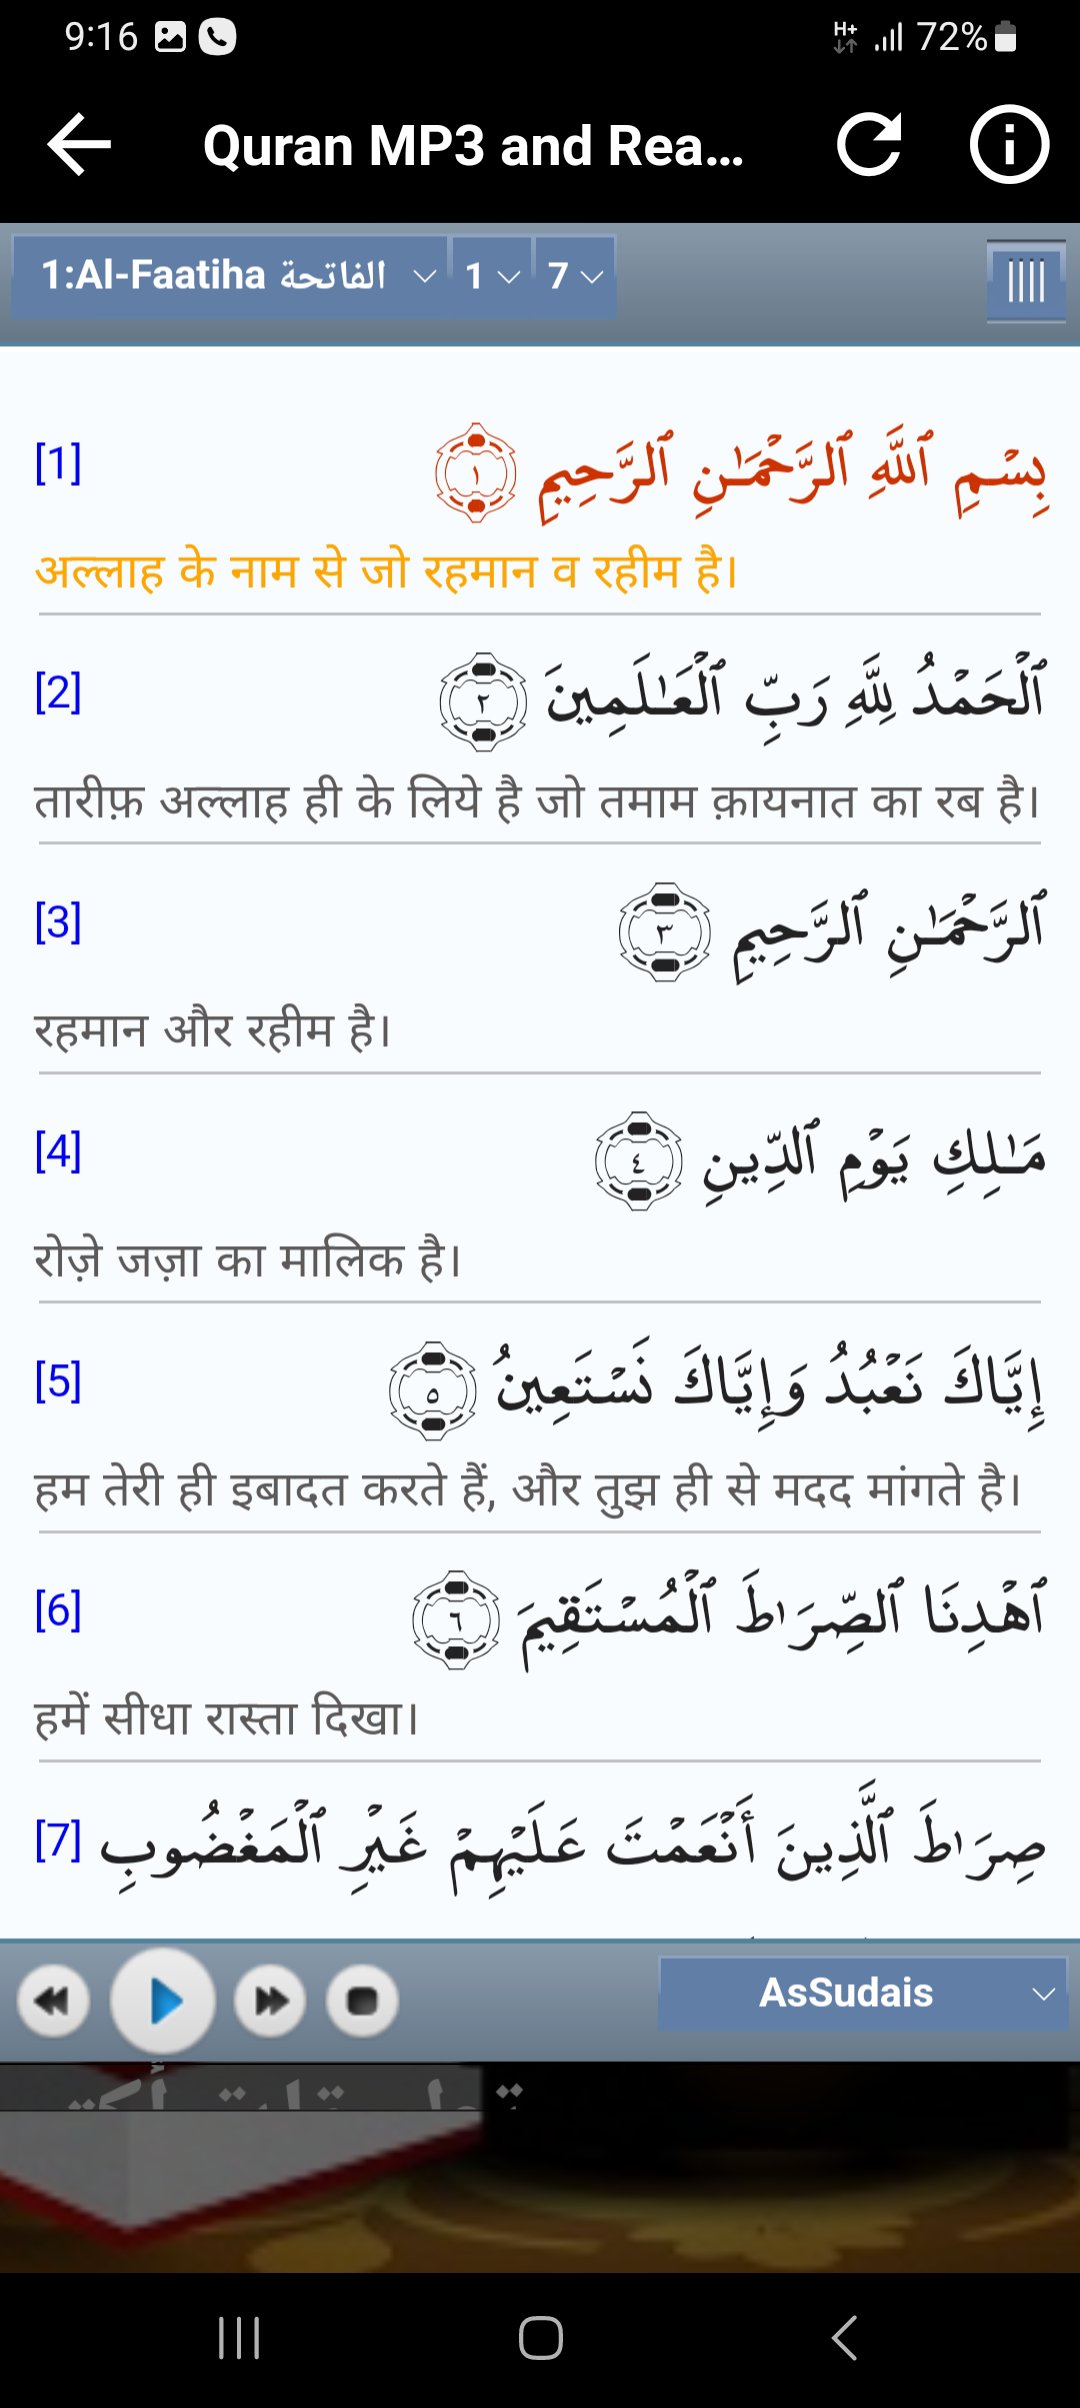 9:16 H+ 72%
Quran MP3 and Rea...
1:Al-Faatiha الفاتحة 1 7
[1] بِسْمِ ٱللَّهِ ٱلرَّحْمَـٰنِ ٱلرَّحِيمِ ١
अल्लाह के नाम से जो रहमान व रहीम है।
[2] ٱلْحَمْدُ لِلَّهِ رَبِّ ٱلْعَـٰلَمِينَ ٢
तारीफ़ अल्लाह ही के लिये है जो तमाम क़ायनात का रब है।
[3] ٱلرَّحْمَـٰنِ ٱلرَّحِيمِ ٣
रहमान और रहीम है।
[4] مَـٰلِكِ يَوْمِ ٱلدِّينِ ٤
रोज़े जज़ा का मालिक है।
[5] إِيَّاكَ نَعْبُدُ وَإِيَّاكَ نَسْتَعِينُ ٥
हम तेरी ही इबादत करते हैं, और तुझ ही से मदद मांगते है।
[6] ٱهْدِنَا ٱلصِّرَٰطَ ٱلْمُسْتَقِيمَ ٦
हमें सीधा रास्ता दिखा।
[7] صِرَٰطَ ٱلَّذِينَ أَنْعَمْتَ عَلَيْهِمْ غَيْرِ ٱلْمَغْضُوبِ
AsSudais